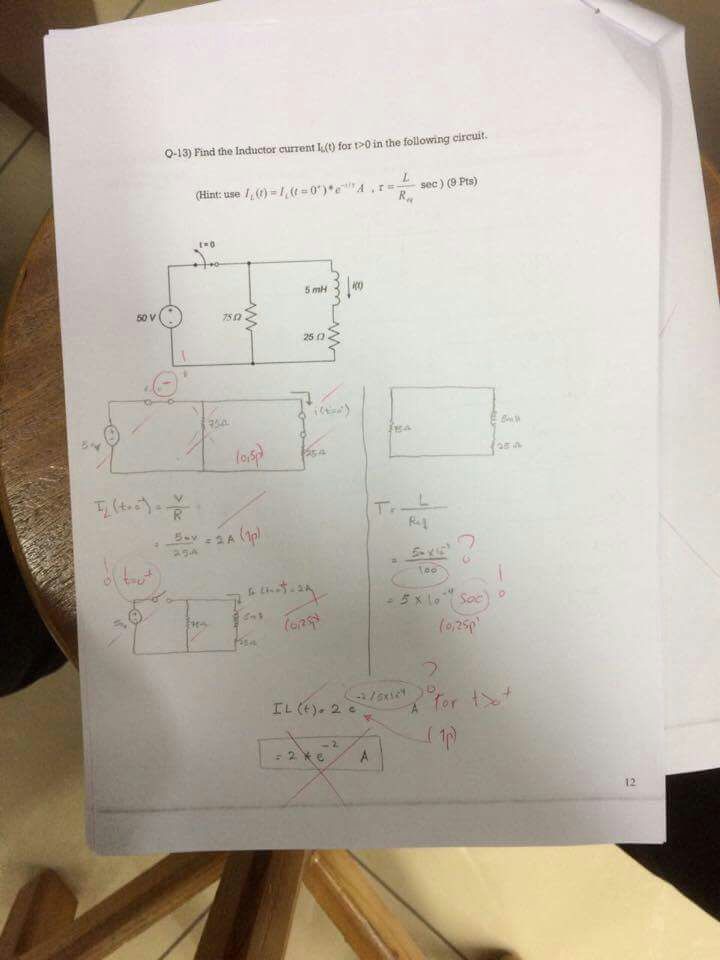 Q-13) Find the Inductor current IL(t) for t>0 in the following circuit.
(Hint: use I_L(t) = I_L(t = 0⁺)* e^(-t/τ) A , τ = L / R_eq sec ) (9 Pts)
t = 0
50 V
75 Ω
5 mH
i(t)
25 Ω
75Ω
(0,5p)
25Ω
I_L (t=0⁻) = V / R
= 50V / 25Ω = 2A (1p)
t=0⁺
I_L (t=0⁺) = 2A
75Ω
5mH
(0,25p)
25Ω
75Ω
5mH
25Ω
T = L / Req
= 5m x 10⁻³ / 100 ?
= 5 x 10⁻⁴ Sec !
(0,25p)
IL (t) = 2 e
A for t>0⁺
?
(1p)
= 2 * e⁻² A
12